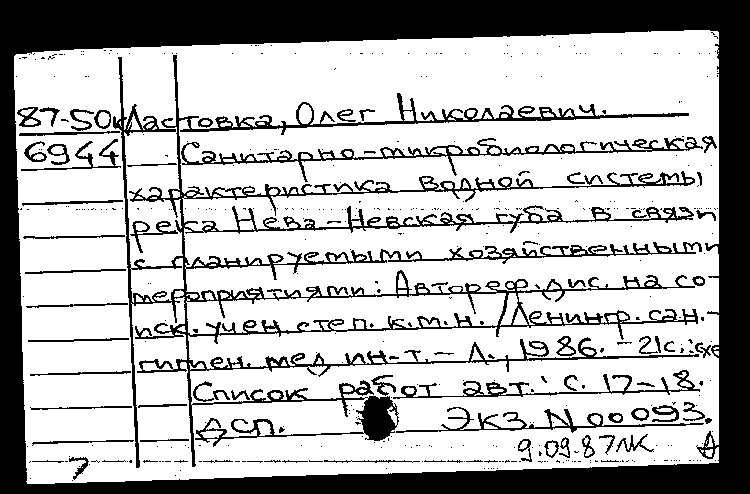 87-50к Ластовка, Олег Николаевич.
6944 Санитарно-микробиологическая
характеристика водной системы
река Нева-Невская губа в связи
с планируемыми хозяйственными
мероприятиями: Автореф. дис. на со-
иск. учен. степ. к.м.н. /Ленингр. сан.-
гигиен. мед ин-т. - Л., 1986. - 21с.:схе
Список работ авт.: с. 17-18.
ДСП. Экз. N 00093.
9.09.87